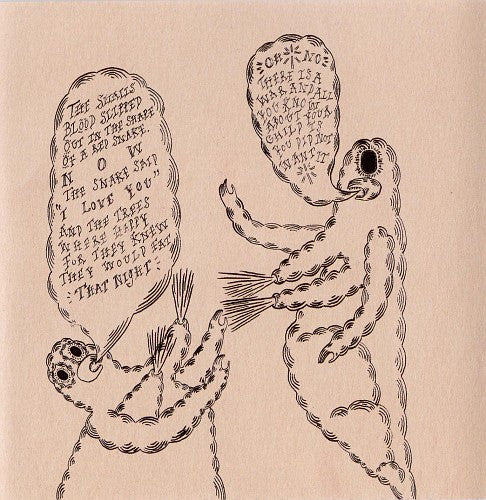 THE SMALLS
BLOOD SLIPPED
OUT IN THE SHAPE
OF A RED SNAKE.
N O W
THE SNAKE SAID
"I LOVE YOU"
AND THE TREES
WHERE HAPPY
FOR THEY KNEW
THEY WOULD EAT
THAT NIGHT
OH NO
THERE IS A
WAR AND ALL
YOU KNOW
ABOUT YOUR
CHILD IS
YOU DID NOT
WANT IT